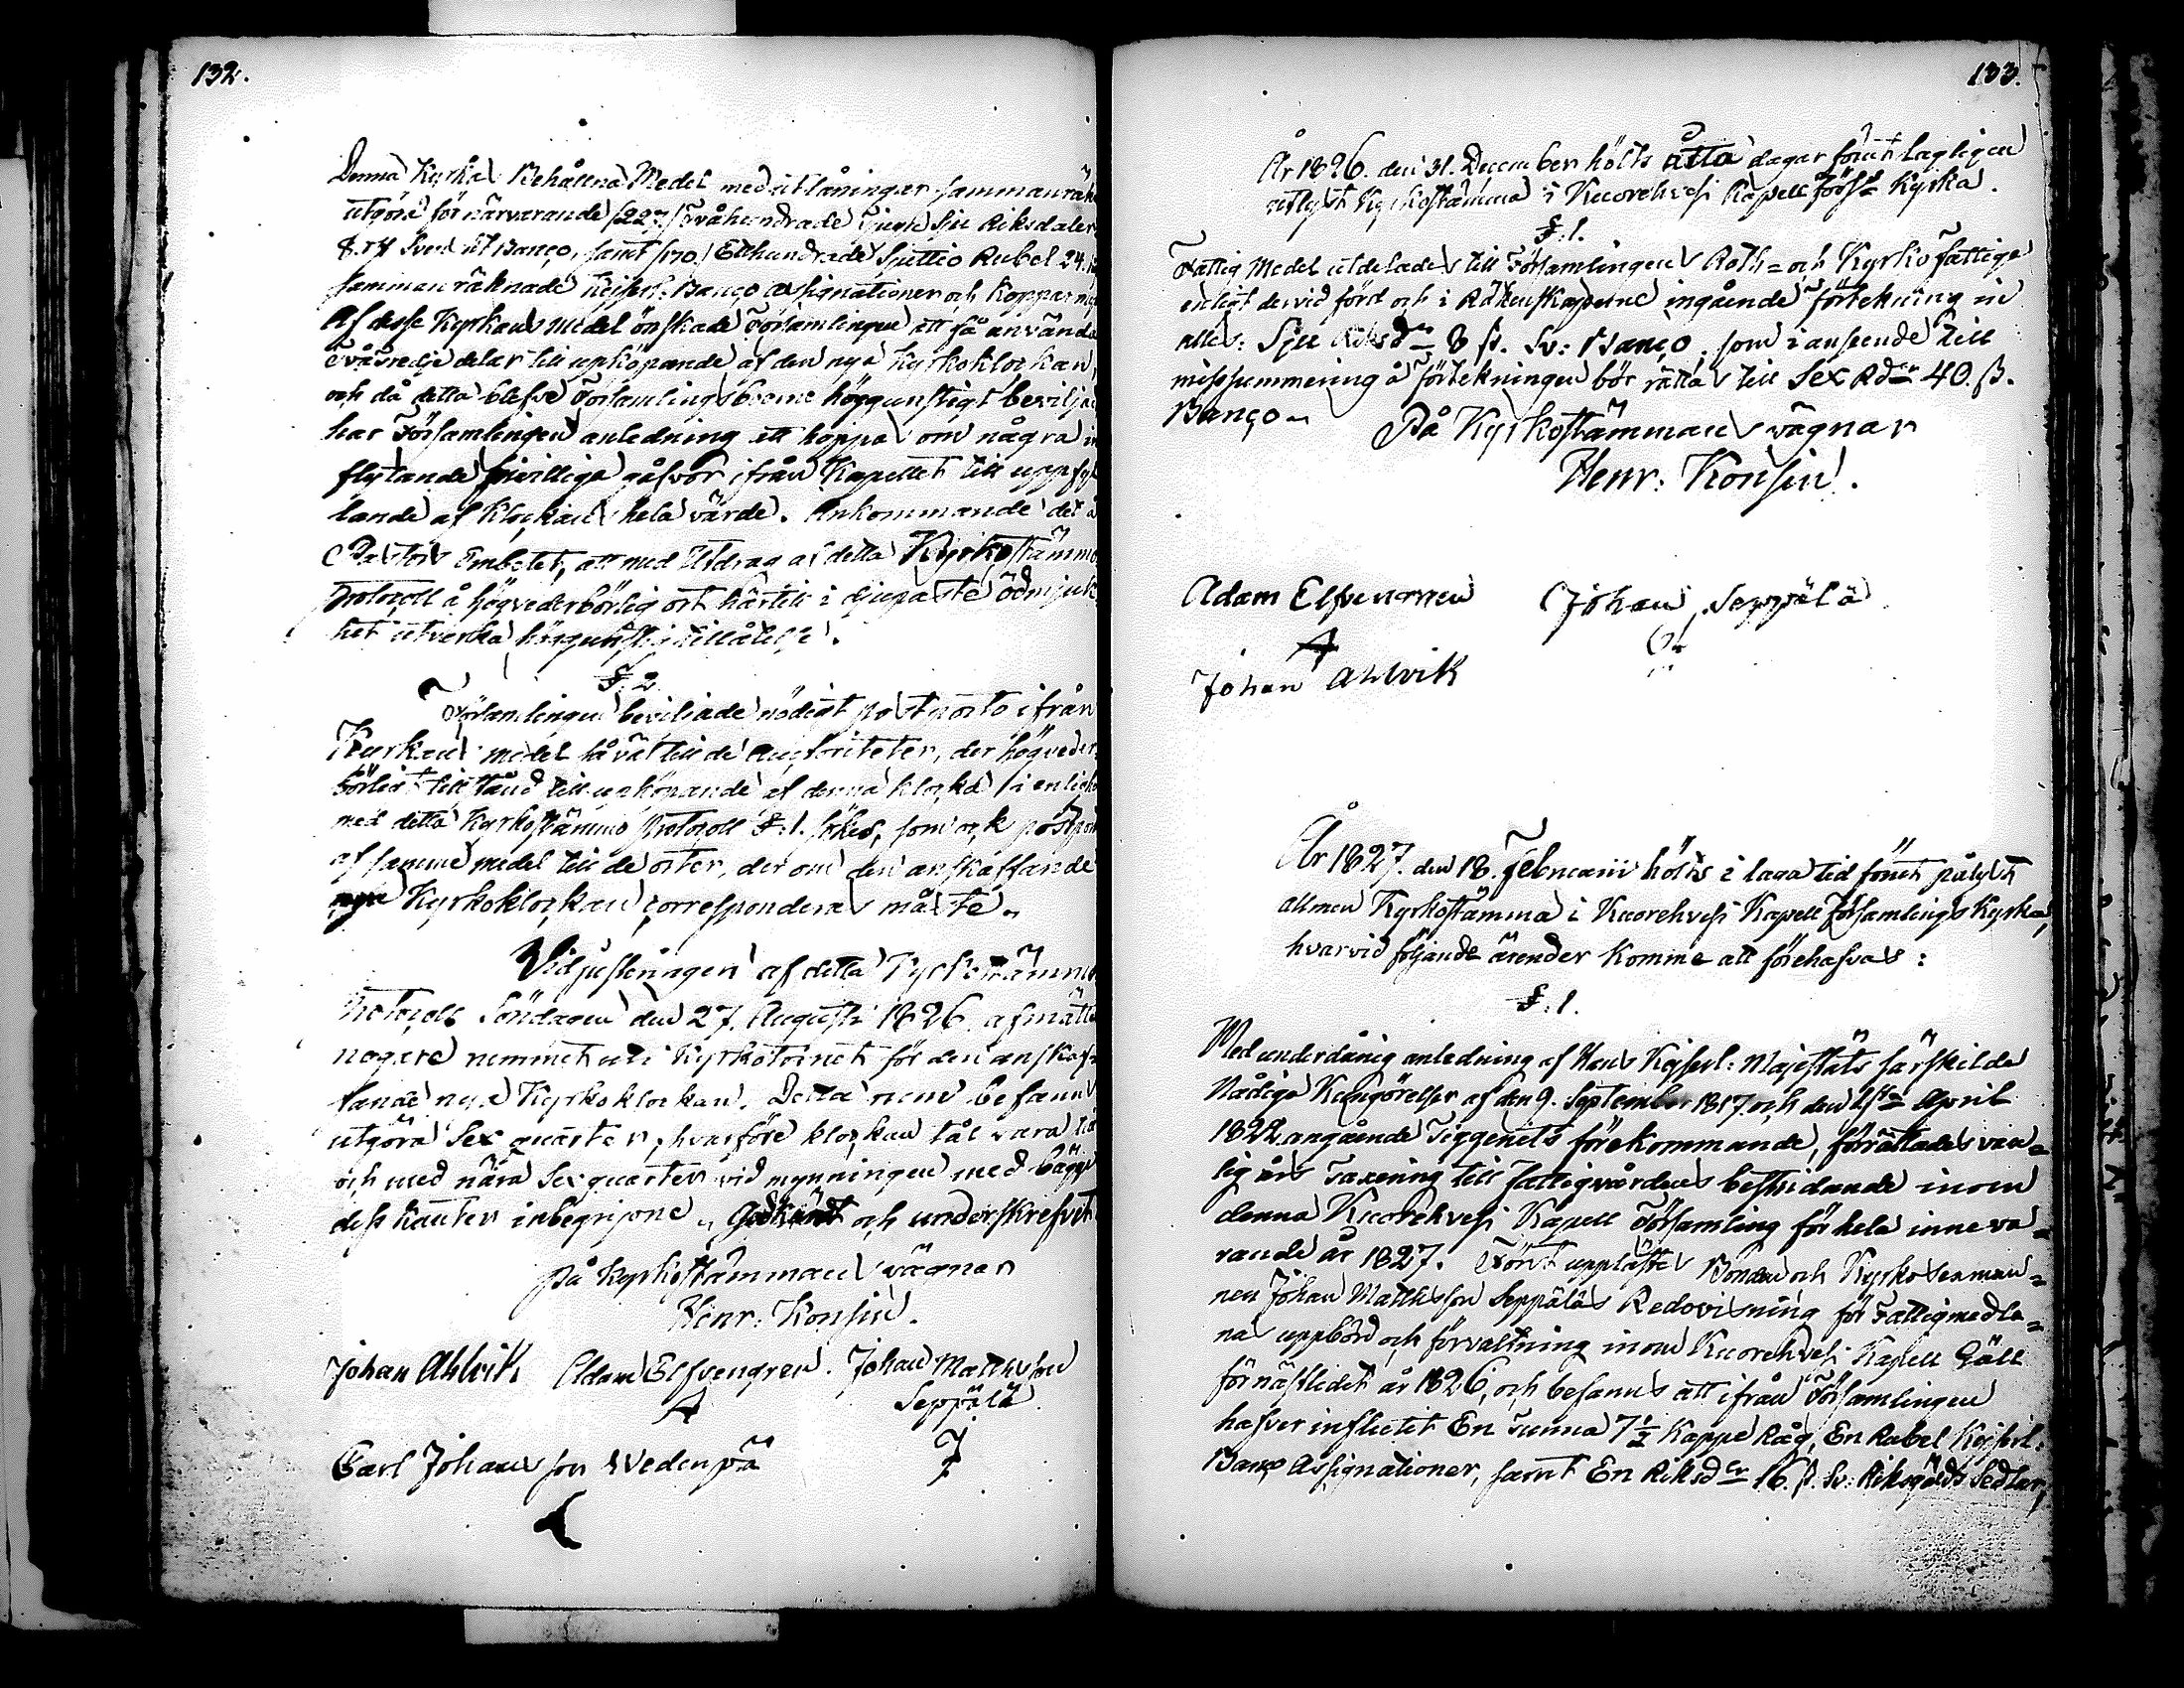 132.
Denna Kyrkas Behållna Medel med utlåningar sammanräk
utgöra för närvarande /227/ Tvåhundrade Tjugu Sju Riksdaler
8. rst Svenskt Banço, samt /170/ Etthundrade Sjuttio Rubel 24.
sammanräknade Kejserl: Banço assignationer och Kopparm
Af desse Kyrkans medel önskade Församlingen att få använda
Tvåtredje delar till upköpande af den nya Kyrkoklockan,
och då detta blefve Församlingsboerne höggunstigt beviljad
har Församlingen anledning att hoppas om några in
flytande frivilliga gåfvor ifrån Kapellet till uppfyl
lande af Klockans hela värde. Ankommande det å
Pastors Embetet, att med Utdrag af detta Kyrkostämmo
protocoll å högvederbörlig ort härtill i djupaste ödmjuk
het utverka höggunstig tillåtelse.
§. 2.
Församlingen beviljade nödigt postporto ifrån
Kyrkans medel såväl till de Auctoriteter, der högveder
börligt tillstånd till upköpande af denna klocka i enlighe
med detta Kyrkostämmo protocoll §. 1. sökes, som ock postpor
af samma medel till de orter, der om den anskaffande
nya Kyrkoklockan corresponderas måste.
Vid justeringen af detta Kyrkostämmo
Protocoll Söndagen den 27. Augusti 1826. afmätte
nogare rummet uti Kyrkotornet för den anskaf
fande nya Kyrkoklockan. Detta rum befanns
utgöra Sex quarter, hvarföre klockan tål vara
och med nära Sex quarter vid mynningen med bägge
dess kanter inbegripne. Godkändt och underskrefvet
på Kyrkostämmans vägnar
Henr: Konsin.
Johan Ahlvik Adam Elfvengren. Johan Mattsson
Seppälä
Carl Johansson Wedenpä
133.
År 1826. den 31. December hölts åtta dagar förut lagligen
utlyst Kyrkostämma i Kuorehvesi Kapell Förs: Kyrka.
§. 1.
Fattig Medel utdelades till Församlingens Roth= och Kyrko Fattige
enligt dervid förd och i Räkenskaperne ingående förtekning in
alles: Sju Riksdr 8 ß. Sv: Banço, som i anseende till
missummering å förtekningen bör rättas till Sex Rdr 40. ß.
Banço.
På Kyrkostämmans vägnar
Henr: Konsin.
Adam Elfvengren Johan Seppälä
Johan Ahlvik
År 1827. den 18. Februarii hölts i laga tid förut pålyst
allmen Kyrkostämma i Kuorehvesi Kapell Församlings Kyrka,
hvarvid följande ärender komme att förehafvas:
§. 1.
Med underdånig anledning af Hans Kejserl: Majestäts särskilde
Nådiga Kungörelser af den 9. September 1817 och den April
1822 angående Tiggeriets förekommande, förättades van=
lig års Taxering till Fattigvårdens bestridande inom
denna Kuorehvesi Kapell Församling för hela inneva=
rande år 1827. Först upplästes Bonden och Kyrko Sexman=
nen Johan Mattsson Seppäläs Redovisning för Fattigmedla=
nas uppbörd och förvaltning inom Kuorehvesi Kapell Gäll
förnästledit år 1826, och befanns att ifrån Församlingen
hafver influtit En Tunna 7 1/2 Kappe Råg, En Rubel Kejserl:
Banço Assignationer, samt En Riksdr 16. ß. Sv: Riksgälds Sedlar,